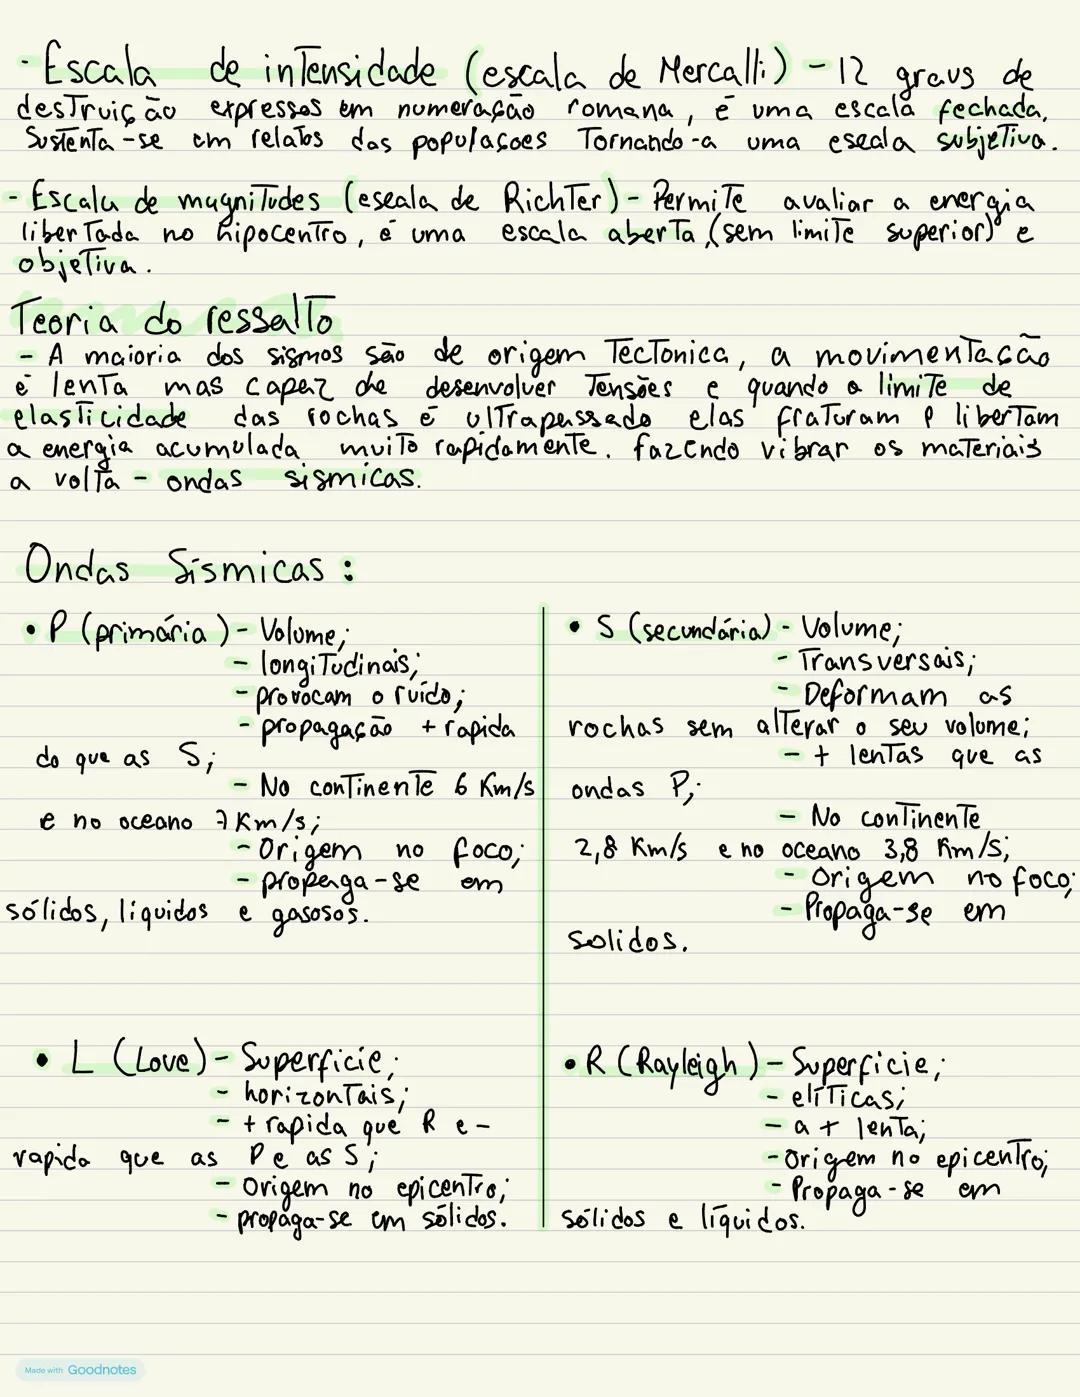 - Escala de intensidade (escala de Mercalli) - 12 graus de
destruição expressos em numeração romana, é uma escala fechada.
Sustenta-se em relatos das populações Tornando-a uma escala subjetiva.
- Escala de magnitudes (escala de Richter) - Permite avaliar a energia
libertada no hipocentro, é uma escala aberta (sem limite superior) e
objetiva.
Teoria do ressalto
- A maioria dos sismos são de origem Tectonica, a movimentação
é lenta mas capaz de desenvolver Tensões e quando o limite de
elasticidade das rochas é ultrapassado elas fraturam e libertam
a energia acumulada muito rapidamente. fazendo vibrar os materiais
a volta - ondas sismicas.
Ondas Sísmicas :
• P (primária) - Volume;
- longitudinais;
- provocam o ruído;
- propagação + rapida
do que as S;
- No continente 6 Km/s
e no oceano 7 Km/s;
- Origem no foco;
- propaga-se em
sólidos, líquidos e gasosos.
• S (secundária) - Volume;
- Transversais;
- Deformam as
rochas sem alterar o seu volume;
- + lentas que as
ondas P;
- No continente
2,8 Km/s e no oceano 3,8 Km/s;
- Origem no foco;
- Propaga-se em
solidos.
• L (Love) - Superficie;
- horizontais;
- + rapida que R e -
rapida que as P e as S;
- Origem no epicentro;
- propaga-se em sólidos.
• R (Rayleigh) - Superficie;
- elíticas;
- a + lenta;
- Origem no epicentro;
- Propaga-se em
sólidos e líquidos.
Made with Goodnotes